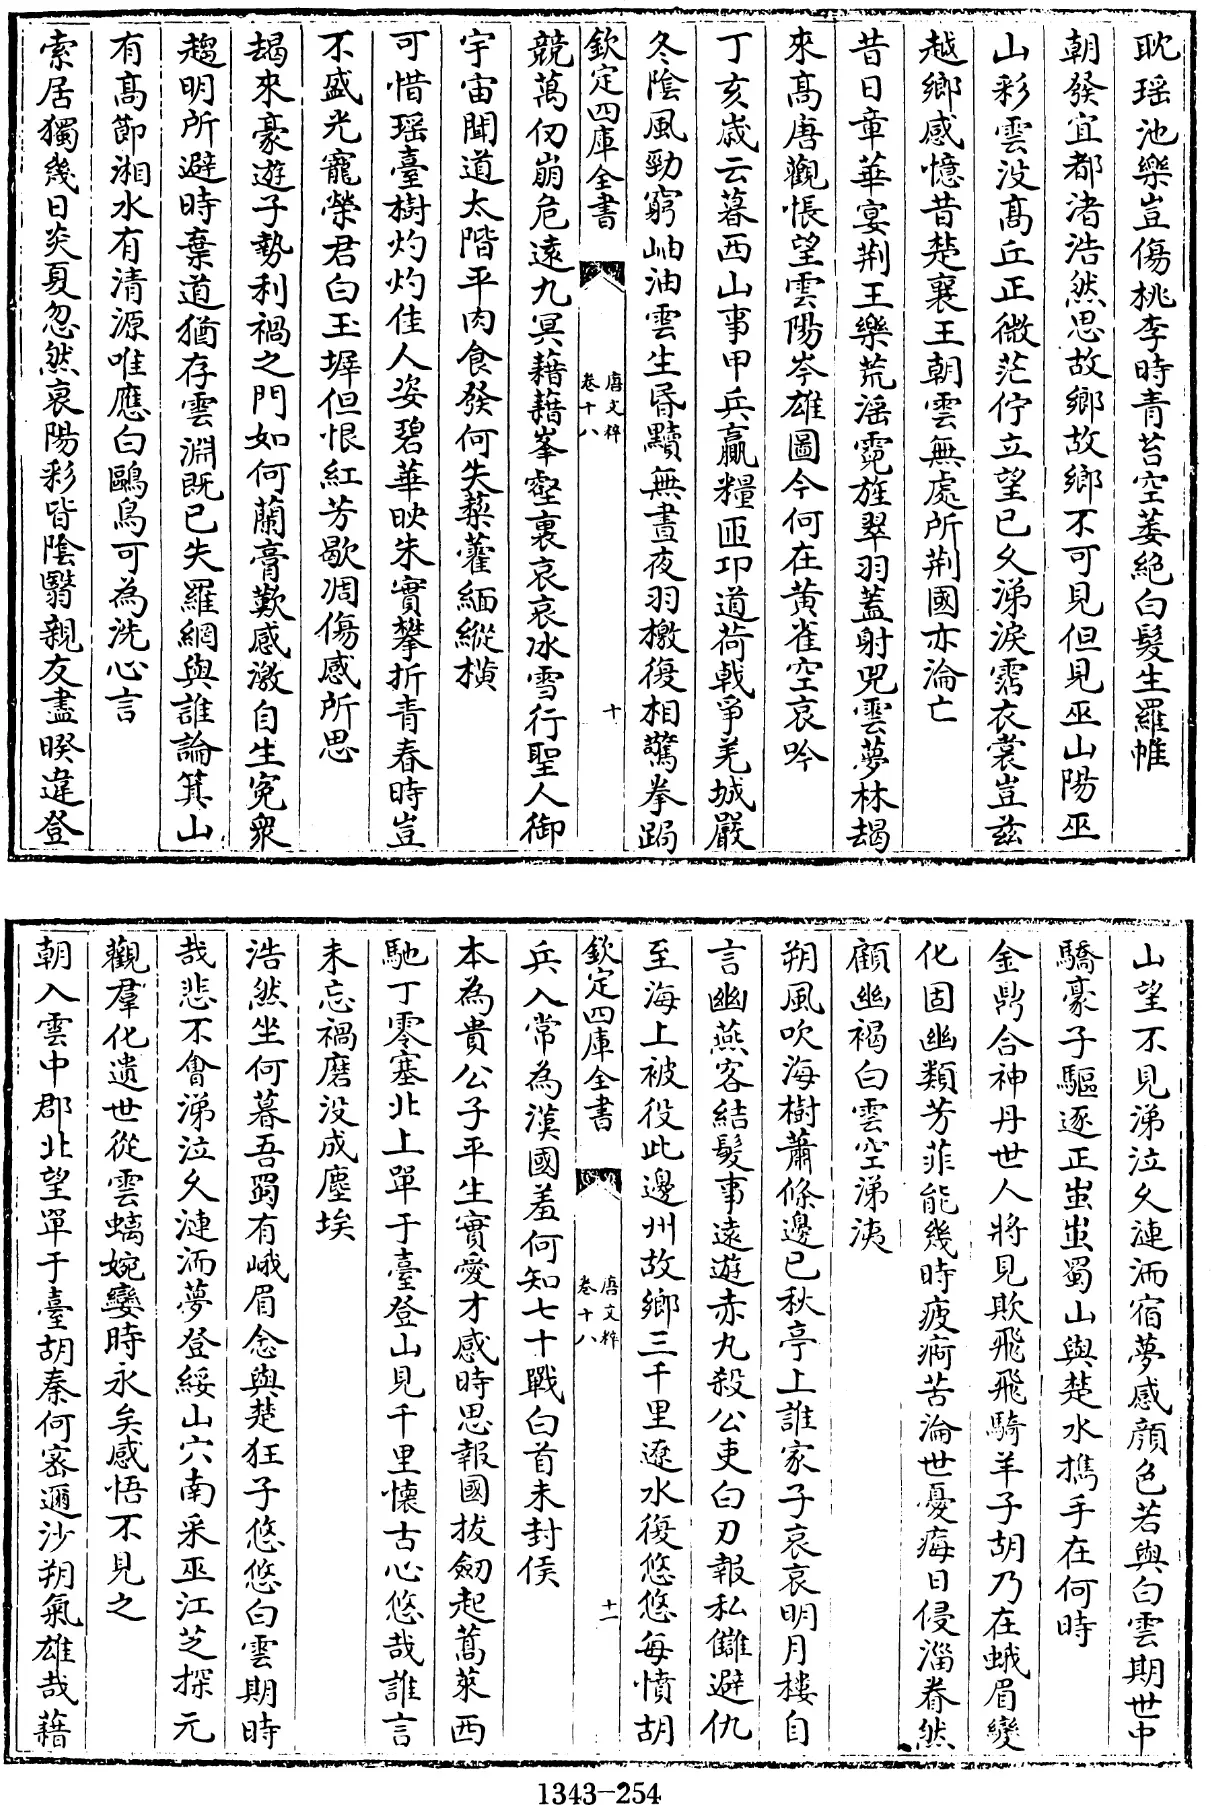 耽瑶池樂豈傷桃李時青苔空萎絶白髮生羅帷
朝發宜都渚浩然思故鄉故鄉不可見但見巫山陽巫
山彩雲没髙丘正微茫佇立望已久涕淚霑衣裳豈兹
越鄉感憶昔楚襄王朝雲無處所荆國亦淪亡
昔日章華宴荆王樂荒淫霓旌翠羽蓋射兕雲夢林朅
來髙唐觀悵望雲陽岑雄圖今何在黄雀空哀吟
丁亥歲云暮西山事甲兵贏糧匝邛道荷戟爭羌城嚴
冬隂風勁窮岫油雲生昏黷無晝夜羽檄復相驚拳跼
欽定四庫全書
唐文粹
卷十八
十
競萬仞崩危遠九冥藉藉峯壑裏哀哀冰雪行聖人御
宇宙聞道太階平肉食發何失藜藿緬縱横
可惜瑶臺樹灼灼佳人姿碧華映朱實攀折青春時豈
不盛光寵榮君白玉墀但恨紅芳歇凋傷感所思
朅來豪遊子勢利禍之門如何蘭膏歎感激自生寃衆
趨明所避時棄道猶存雲淵既已失羅網與誰論箕山
有髙節湘水有清源唯應白鷗鳥可為洗心言
索居獨幾日炎夏忽然衰陽彩皆隂翳親友盡暌違登
山望不見涕泣久漣洏宿夢感顔色若與白雲期世中
驕豪子驅逐正蚩蚩蜀山與楚水攜手在何時
金鼎合神丹世人將見欺飛飛騎羊子胡乃在蛾眉變
化固幽類芳菲能幾時疲疴苦淪世憂痗日侵淄眷然
顧幽褐白雲空涕洟
朔風吹海樹蕭條邊已秋亭上誰家子哀哀明月樓自
言幽燕客結髮事遠遊赤丸殺公吏白刃報私讎避仇
至海上被役此邊州故鄉三千里遼水復悠悠每憤胡
欽定四庫全書
唐文粹
卷十八
十一
兵入常為漢國羞何知七十戰白首未封侯
本為貴公子平生實愛才感時思報國拔劒起蒿萊西
馳丁零塞北上單于臺登山見千里懷古心悠哉誰言
未忘禍磨没成塵埃
浩然坐何暮吾蜀有峨眉念與楚狂子悠悠白雲期時
哉悲不㑹涕泣久漣洏夢登綏山穴南采巫江芝探元
觀羣化遺世從雲螭婉孌時永矣感悟不見之
朝入雲中郡北望單于臺胡秦何宻邇沙朔氣雄哉藉
1343-254